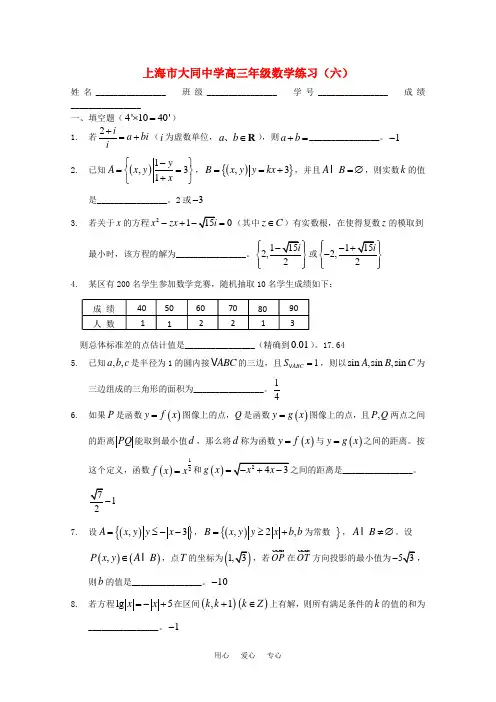 上海市大同中学高三年级数学练习（六）
姓名_______________ 班级_______________ 学号_______________ 成绩
_______________
一、填空题（4'×10=40'）
1. 若 (2+i)/i = a+bi（i为虚数单位，a、b∈R），则a+b=_______________。−1
2. 已知A={(x,y) | (1−y)/(1+x) = 3}，B={(x,y) | y=kx+3}，并且A I B=∅，则实数k的值
是_______________。2或−3
3. 若关于x的方程x²−zx+1−√15i=0（其中z∈C）有实数根，在使得复数z的模取到
最小时，该方程的解为_______________。{2, (1−√15i)/2}或{−2, (−1+√15i)/2}
4. 某区有200名学生参加数学竞赛，随机抽取10名学生成绩如下：
成 绩 40 50 60 70 80 90
人 数 1 1 2 2 1 3
则总体标准差的点估计值是_______________（精确到0.01）。17.64
5. 已知a,b,c是半径为1的圆内接VABC的三边，且S_VABC=1，则以sin A,sin B,sin C为
三边组成的三角形的面积为_______________。1/4
6. 如果P是函数y=f(x)图像上的点，Q是函数y=g(x)图像上的点，且P,Q两点之间
的距离PQ能取到最小值d，那么将d称为函数y=f(x)与y=g(x)之间的距离。按
这个定义，函数f(x)=x^(1/2)和g(x)=√(−x²+4x−3)之间的距离是_______________。
√7/2−1
7. 设A={(x,y) | y≤−x−3}，B={(x,y) | y≥2x+b,b为常数 }，A I B≠∅。设
P(x,y)∈(A I B)，点T的坐标为(1,√3)，若OP在OT方向投影的最小值为−5√3，
则b的值是_______________。−10
8. 若方程lg|x|=−|x|+5在区间(k,k+1)(k∈Z)上有解，则所有满足条件的k的值的和为
_______________。−1
用心 爱心 专心